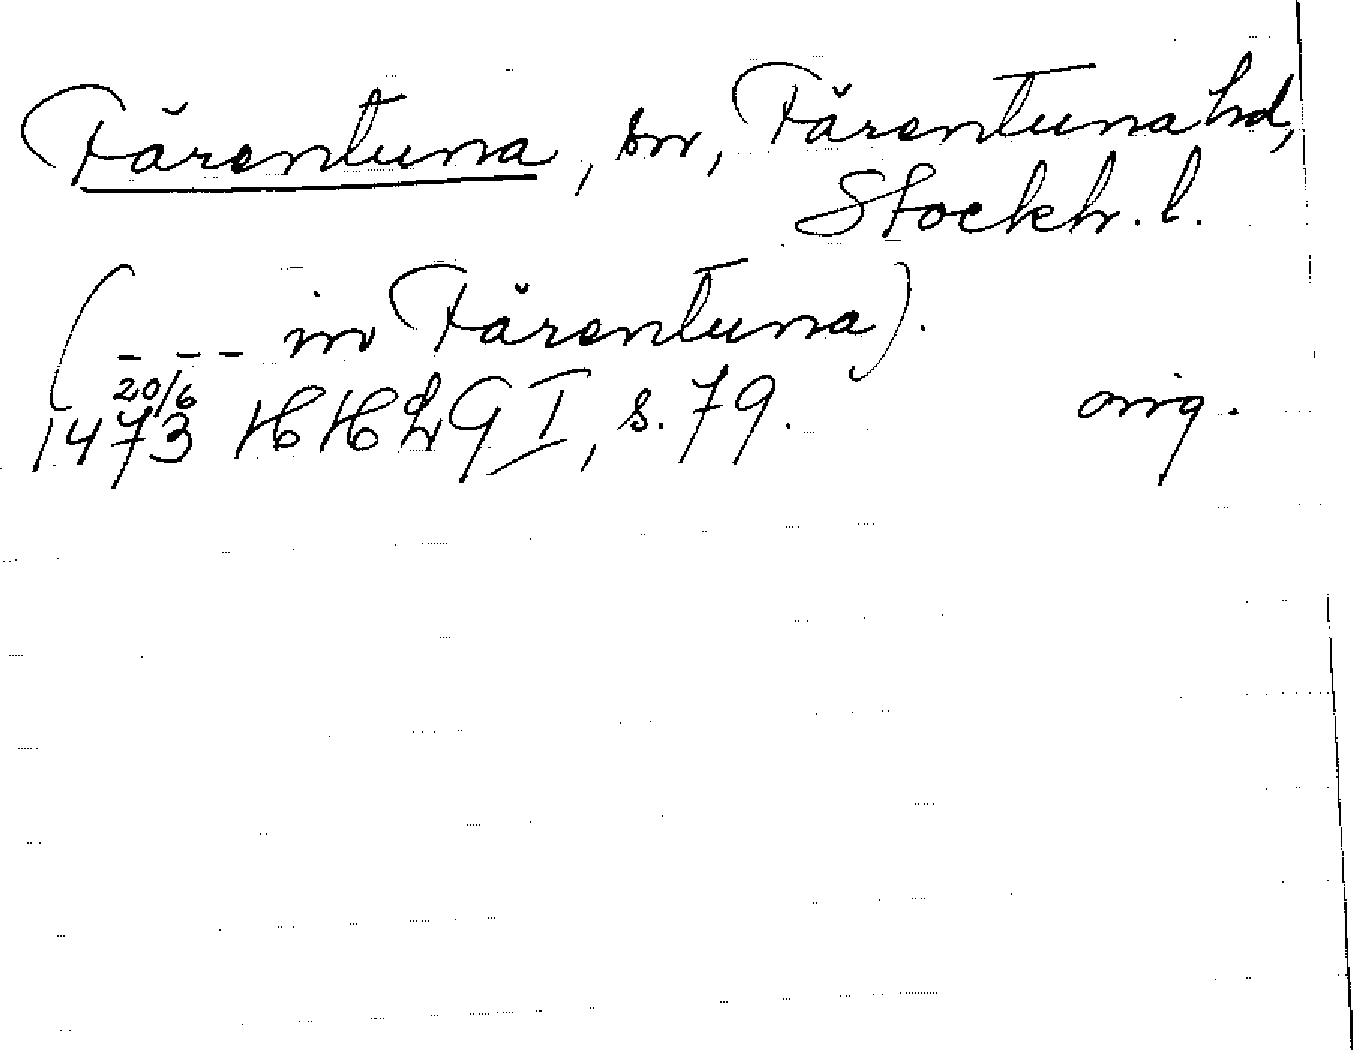 Färentuna, sn, Färentuna hd,
Stockh. l.
(_ _ _ in Färentuna).
20/6
1473 HHLG I, s. 79. orig.